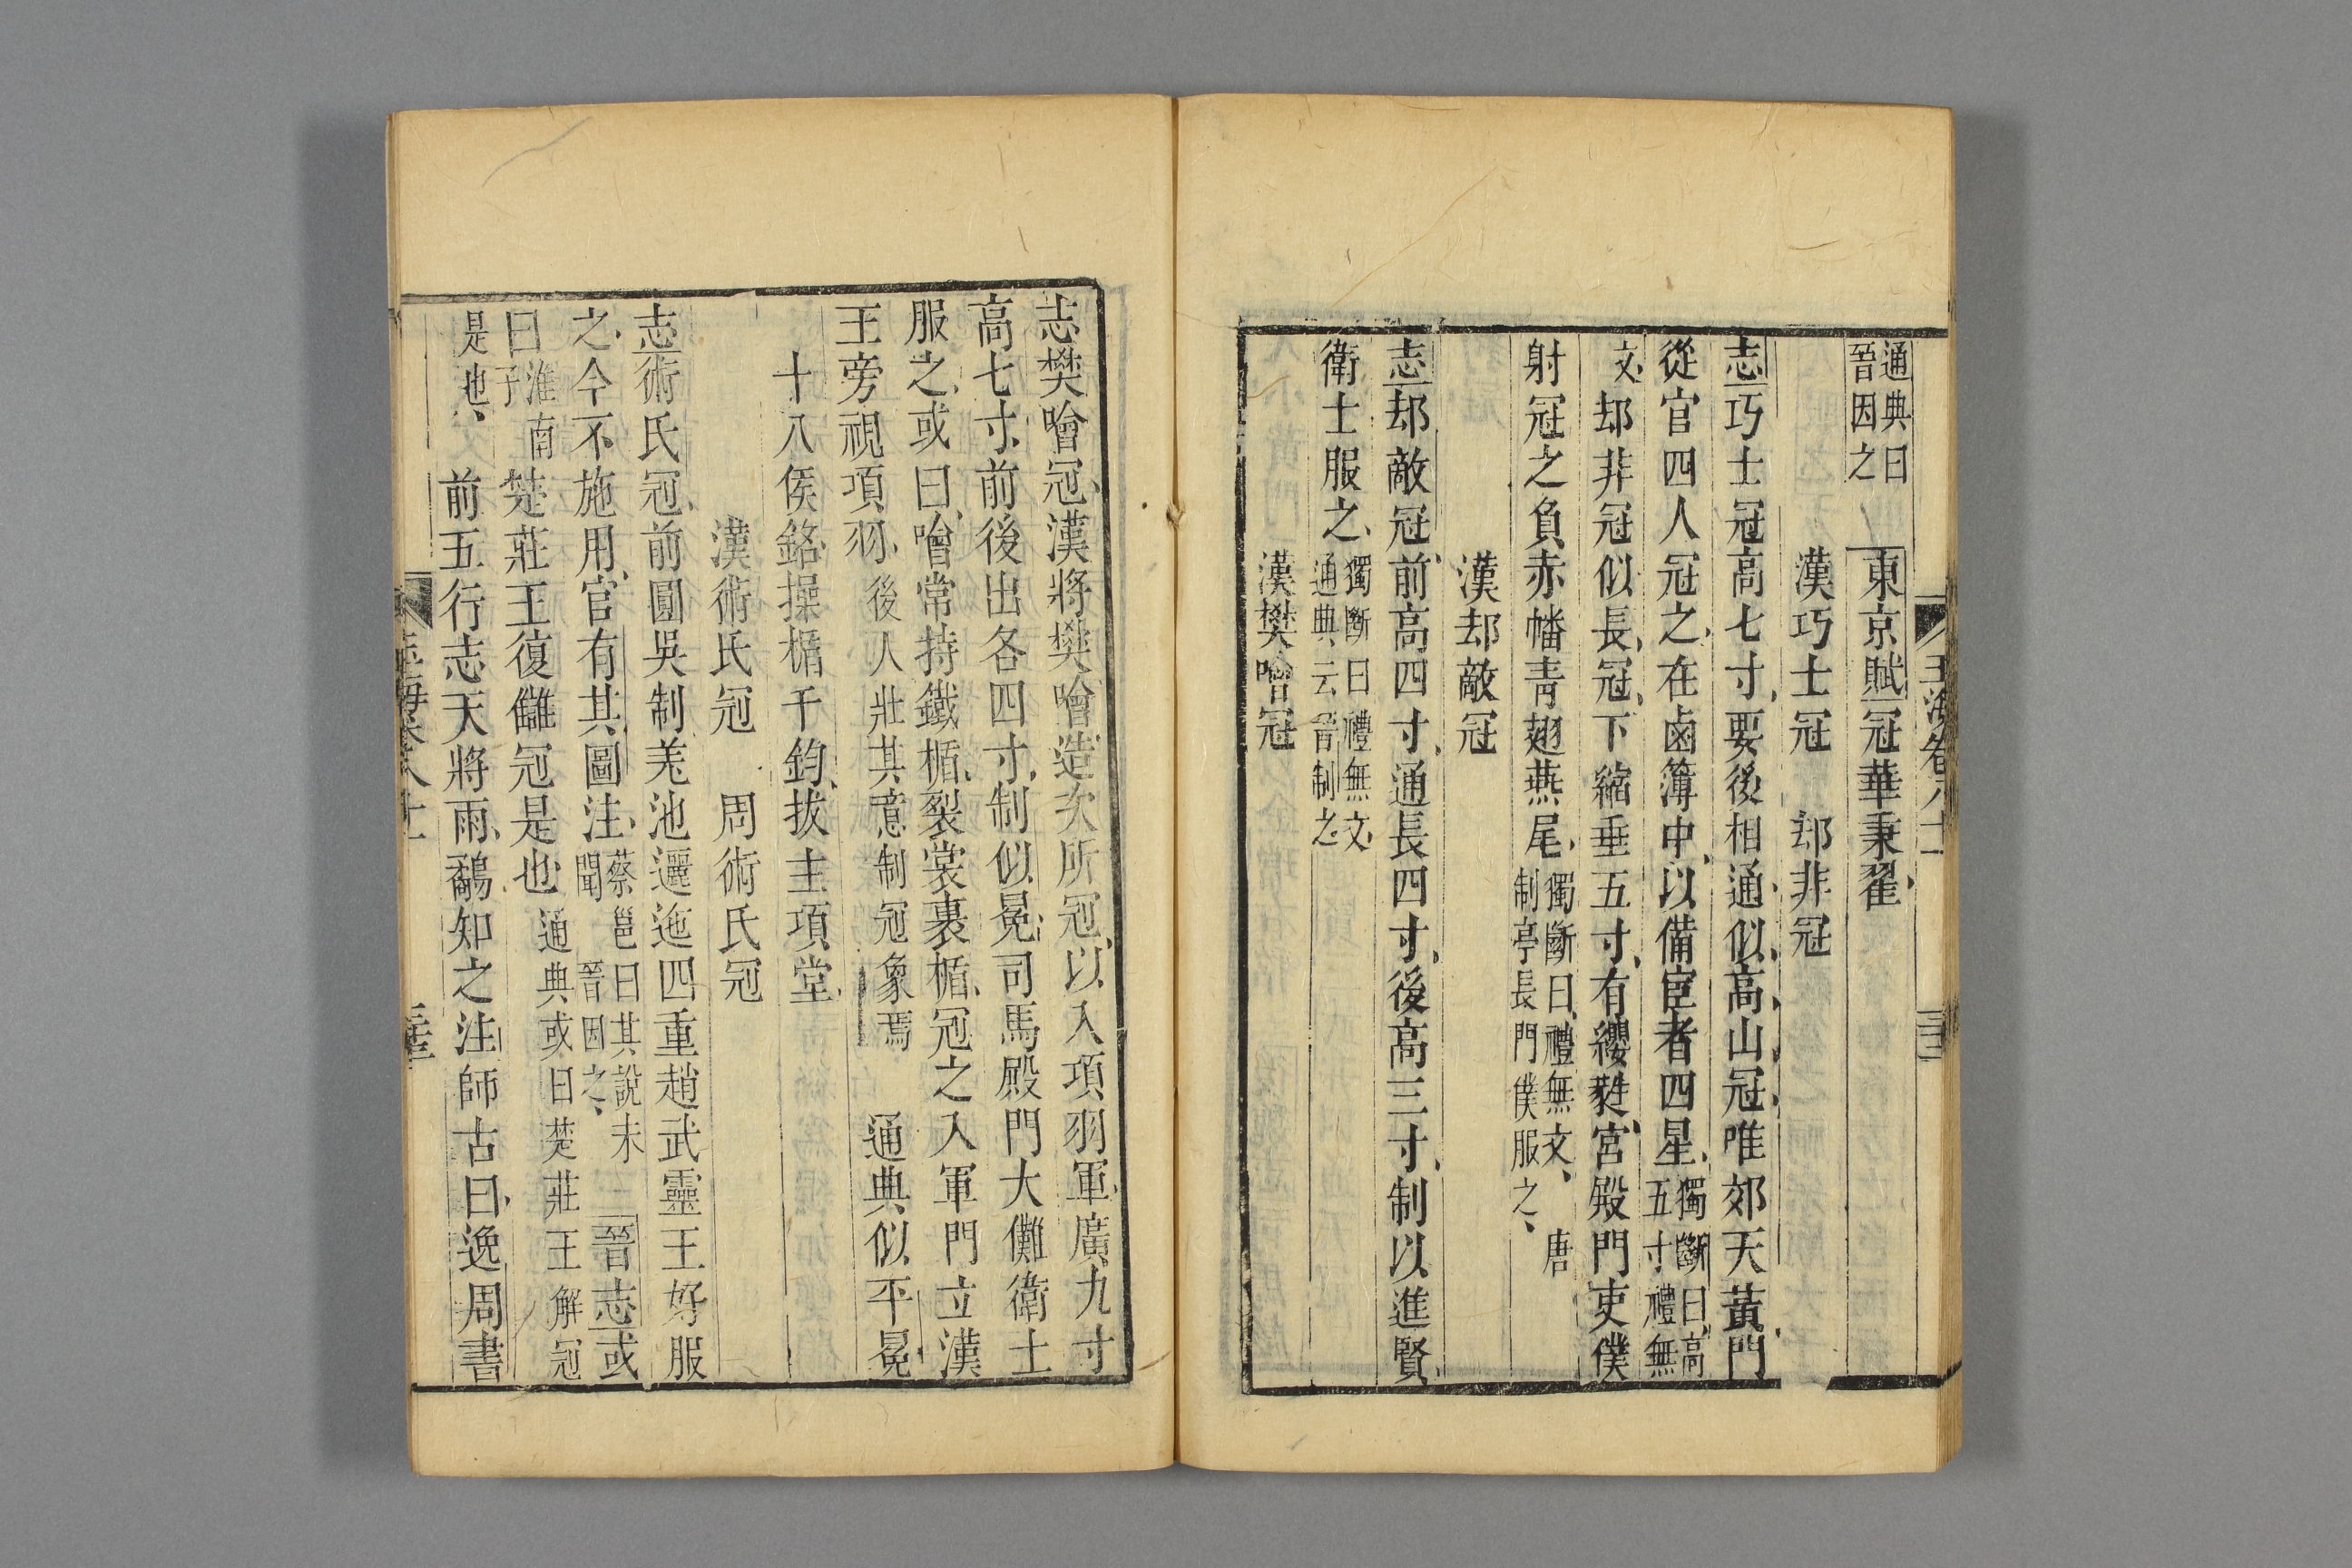 玉海卷八十一
通典曰晉因之 東京賦冠華秉翟
漢巧士冠 却非冠
志巧士冠高七寸要後相通似高山冠唯郊天黃門
從官四人冠之在鹵簿中以備宦者四星獨斷曰高五寸禮無
文却非冠似長冠下縮垂五寸有纓緌宮殿門吏僕
射冠之負赤幡青翅燕尾獨斷曰禮無文唐制亭長門僕服之
漢却敵冠
志却敵冠前高四寸通長四寸後高三寸制以進賢
衛士服之獨斷曰禮無文通典云晉制之
漢樊噲冠
志樊噲冠漢將樊噲造次所冠以入項羽軍廣九寸
高七寸前後出各四寸制似冕司馬殿門大儺衛士
服之或曰噲常持鐵楯裂裳裹楯冠之入軍門立漢
王旁視項羽後人壯其意制冠象焉 通典似平冕
十八侯銘操楯千鈞拔主項堂
漢術氏冠 周術氏冠
志術氏冠前圓吳制羌池邐迤四重趙武靈王好服
之今不施用官有其圖注蔡邕曰其說未聞晉因之 晉志或
曰淮南子楚莊王復讎冠是也通典或曰楚莊王解冠
是也 前五行志天將雨鷸知之注師古曰逸周書